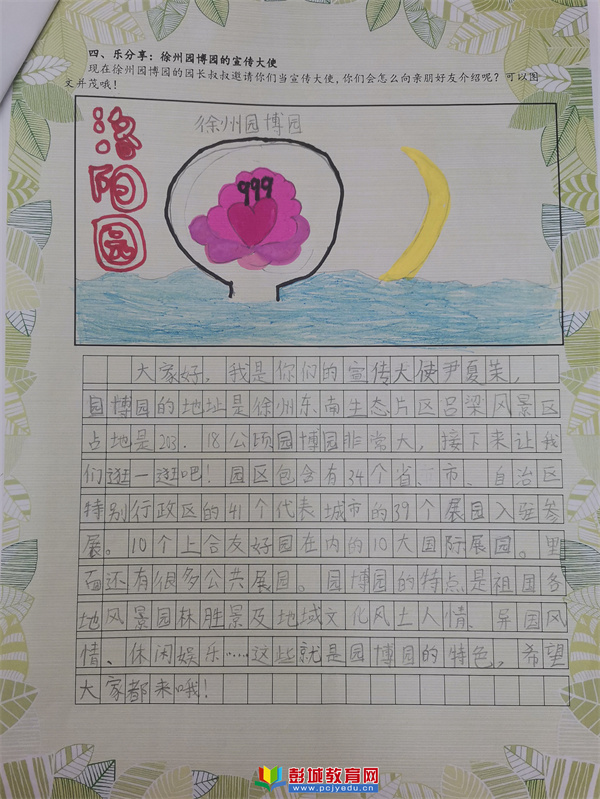 四、乐分享：徐州园博园的宣传大使
现在徐州园博园的园长叔叔邀请你们当宣传大使，你们会怎么向亲朋好友介绍呢？可以图
文并茂哦！
洛阳园
徐州园博园
999
大家好，我是你们的宣传大使尹夏茱，
园博园的地址是徐州东南生态片区吕梁风景区
占地是203.18公顷园博园非常大，接下来让我
们逛一逛吧！园区包含有34个省、市、自治区
特别行政区的41个代表城市的39个展园入驻参
展。10个上合友好园在内的10大国际展园。里
面还有很多公共展园。园博园的特点是祖国各
地风景园林胜景及地域文化风土人情、异国风
情、休闲娱乐……这些就是园博园的特色，希望
大家都来哦！
彭城教育网
www.pcjyedu.cn